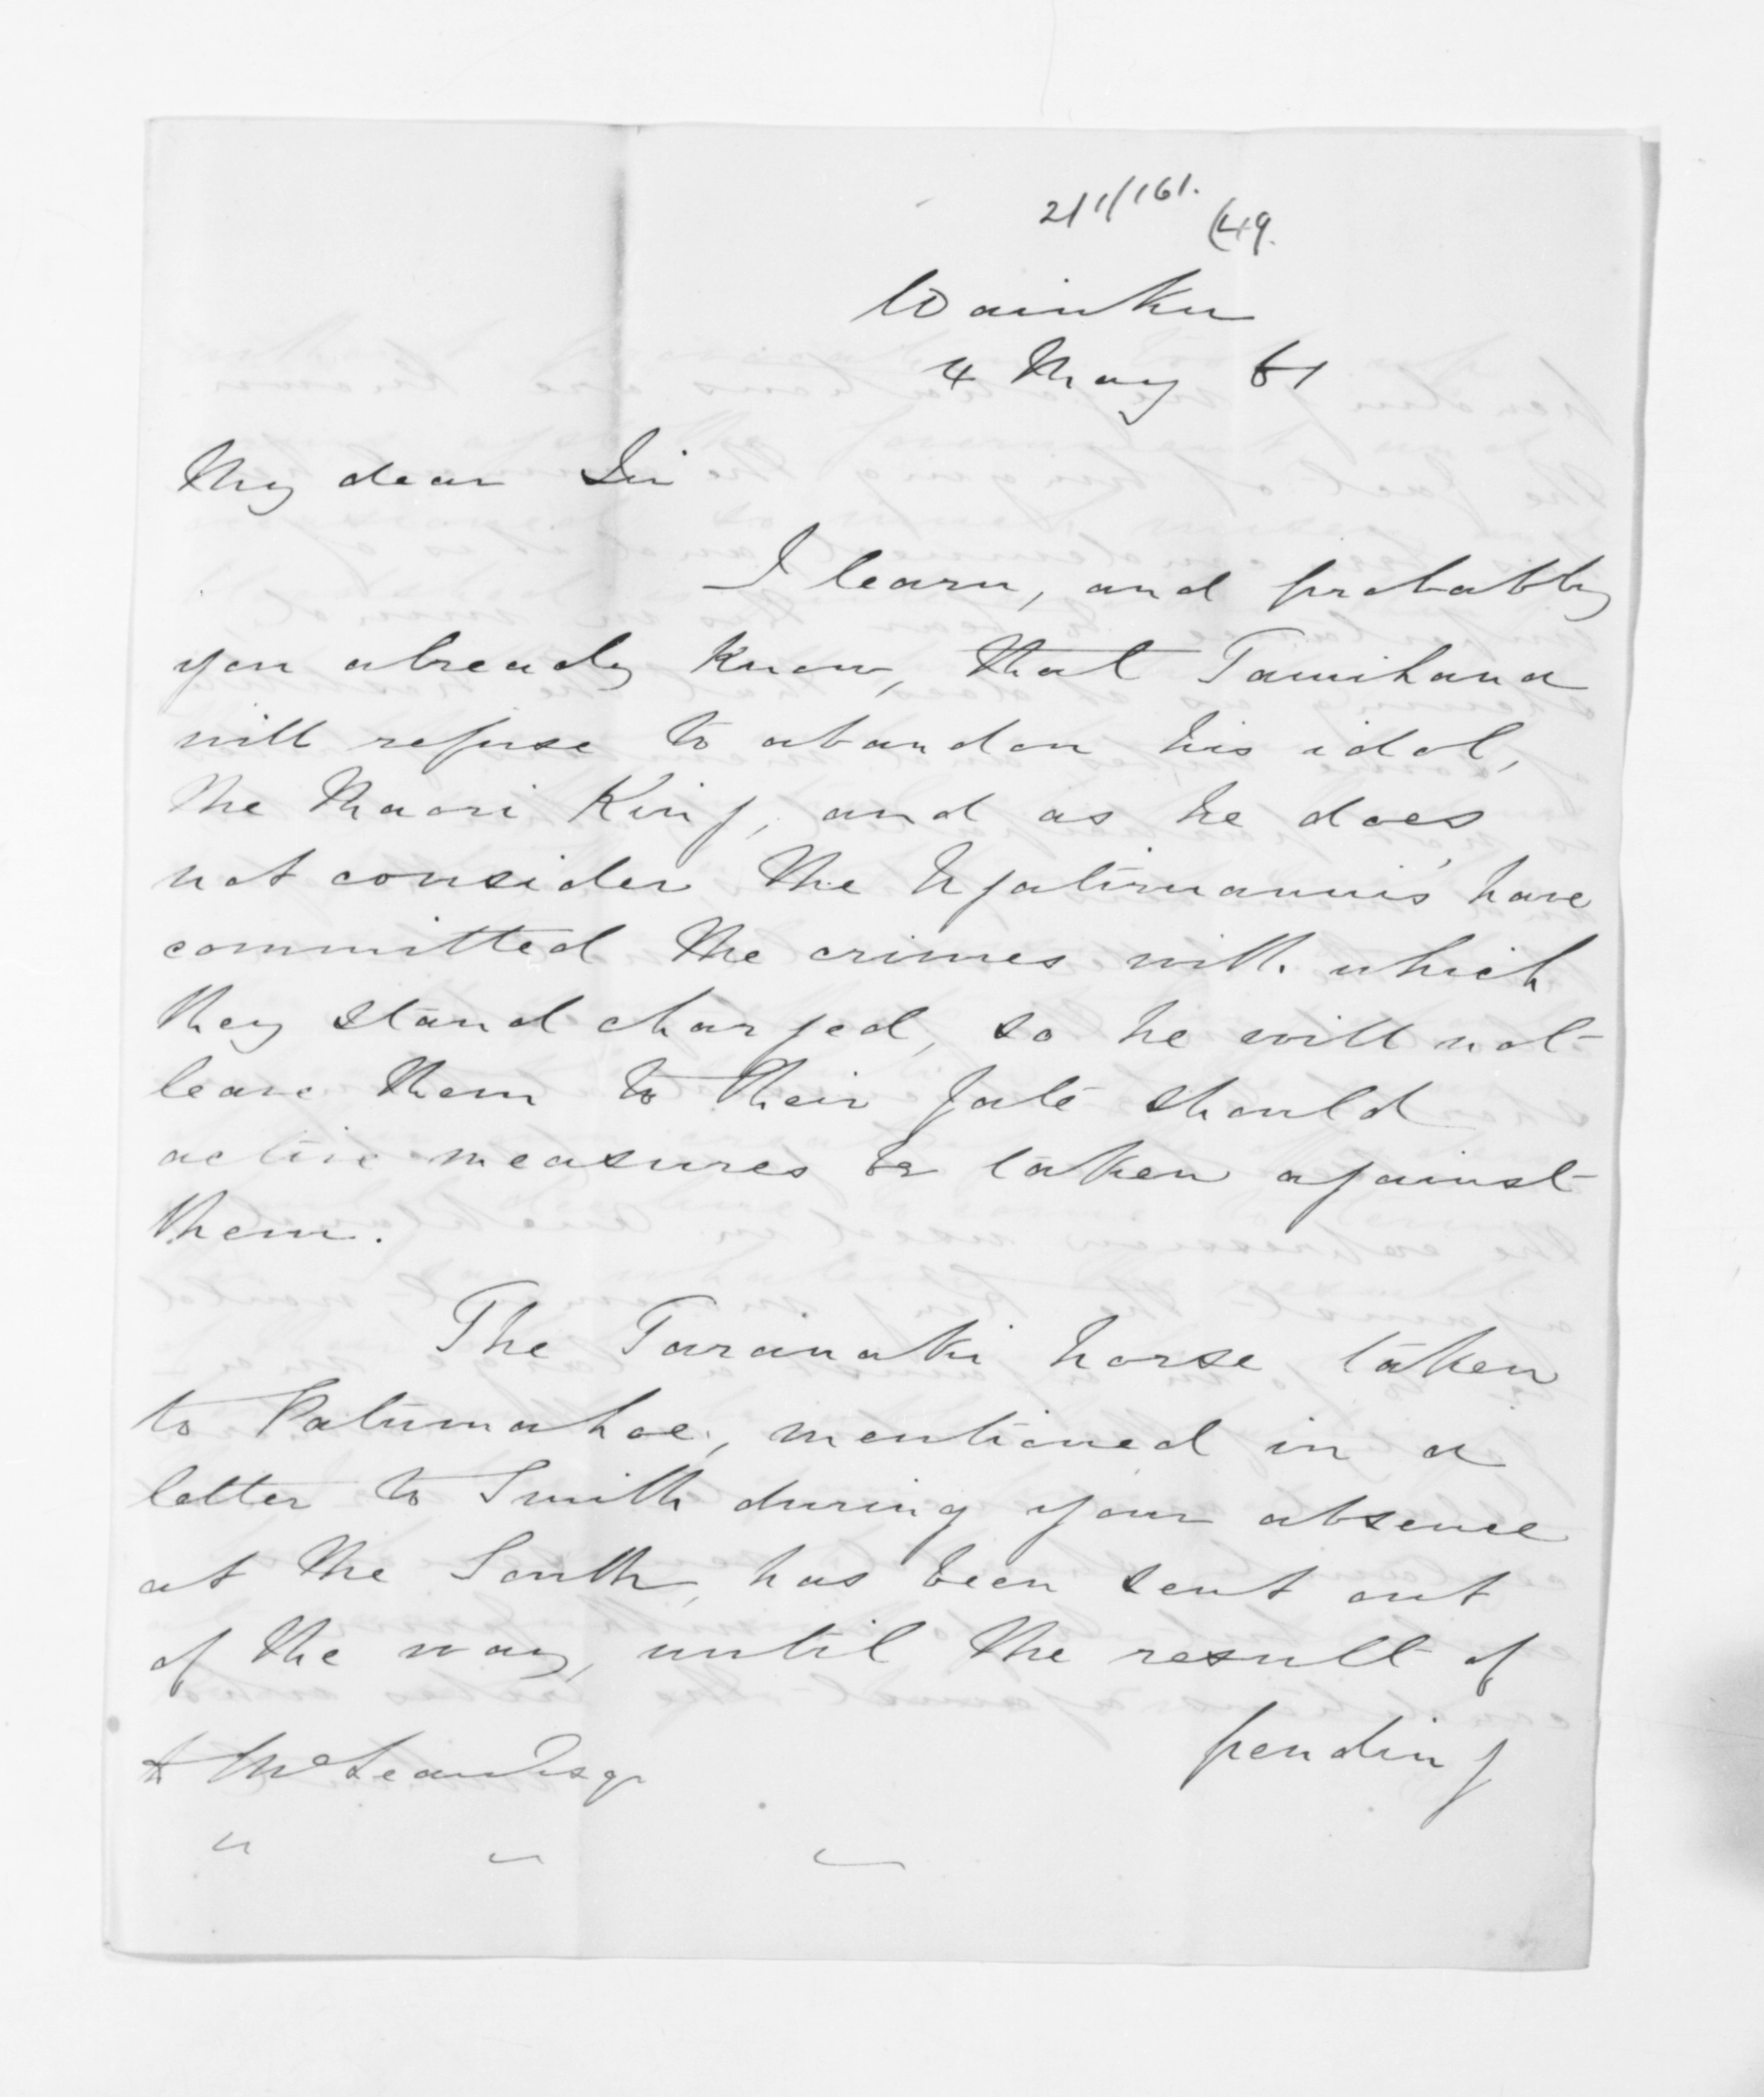 2/1/161.
(49.
Waiuku
4 May 61
My dear Sir
I learn, and probably
you already know, that Tamihana
will refuse to abandon his idol,
the Maori King, and as he does
not consider the Ngatimaniu's have
committed the crimes with which
they stand charged, so he will not
leave them to their fate should
active measures be taken against
them.
The Taranaki horse taken
to Patumahoe, mentioned in a
letter to Smith during your absence
at the South, has been sent out
of the way, until the result of
pending
McLean Esqr